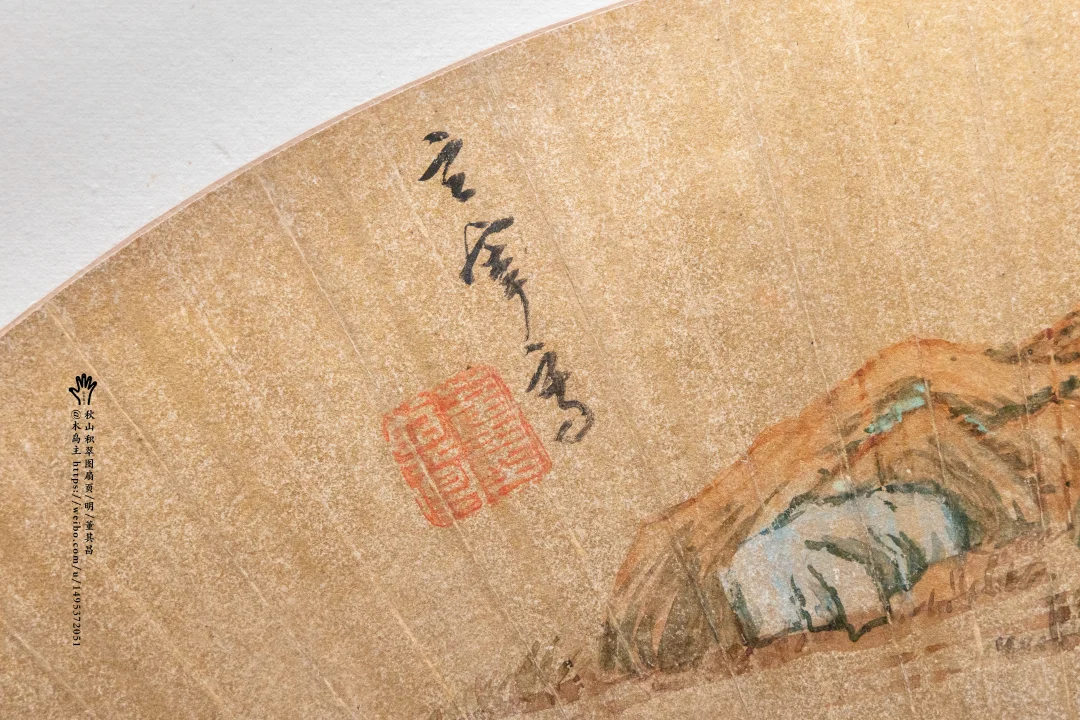 玄宰寫
秋山积翠图扇页/明/董其昌
@木岛主 https://weibo.com/u/1495372051